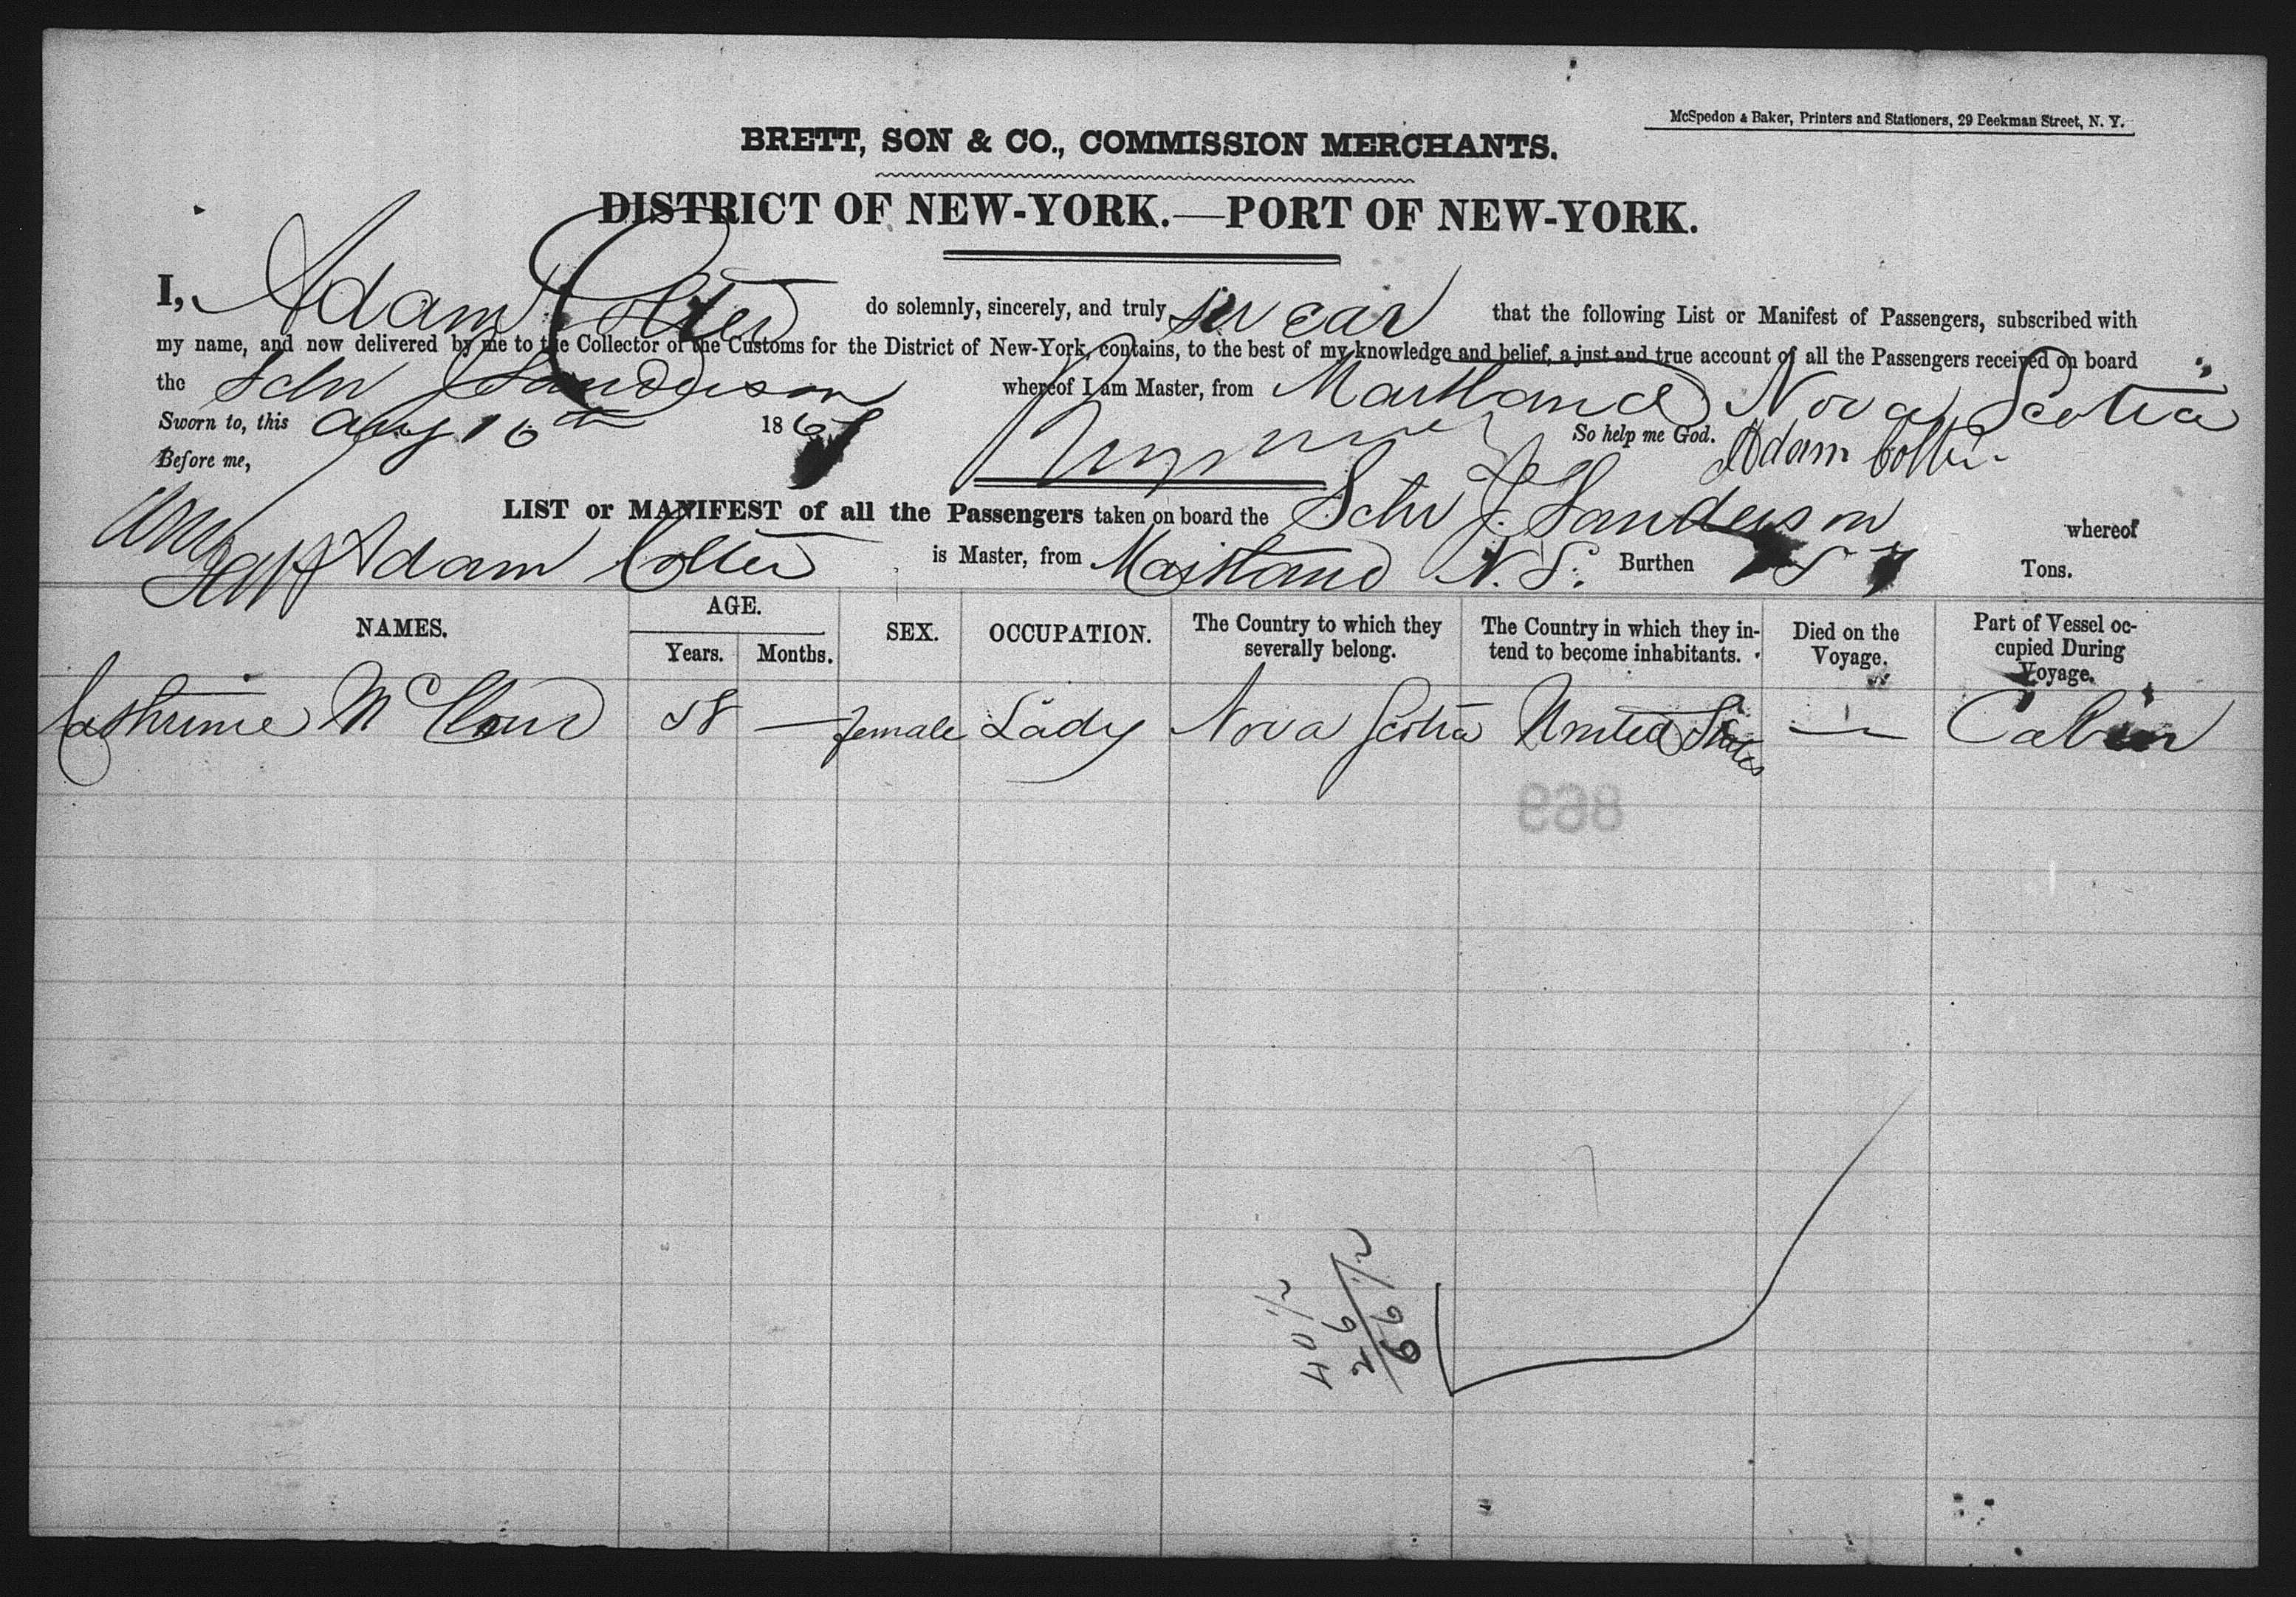 McSpedon & Baker, Printers and Stationers, 29 Beekman Street, N. Y.
BRETT, SON & CO., COMMISSION MERCHANTS.
DISTRICT OF NEW-YORK.—PORT OF NEW-YORK.
I, Adam Colter do solemnly, sincerely, and truly swear that the following List or Manifest of Passengers, subscribed with
my name, and now delivered by me to the Collector of the Customs for the District of New-York, contains, to the best of my knowledge and belief, a just and true account of all the Passengers received on board
the Schr J Sanderson whereof I am Master, from Maitland Nova Scotia
Sworn to, this Aug 10th 186 So help me God. Adam Colter
Before me,
LIST or MANIFEST of all the Passengers taken on board the Schr J. Sanderson whereof
Adam Colter is Master, from Maitland N.S. Burthen Tons.
NAMES. AGE. Years. Months. SEX. OCCUPATION. The Country to which they severally belong. The Country in which they intend to become inhabitants. Died on the Voyage. Part of Vessel occupied During Voyage.
Cathrine McCloud 58 — female Lady Nova Scotia United States — Cabin
869
40 1/2
26
66 1/2